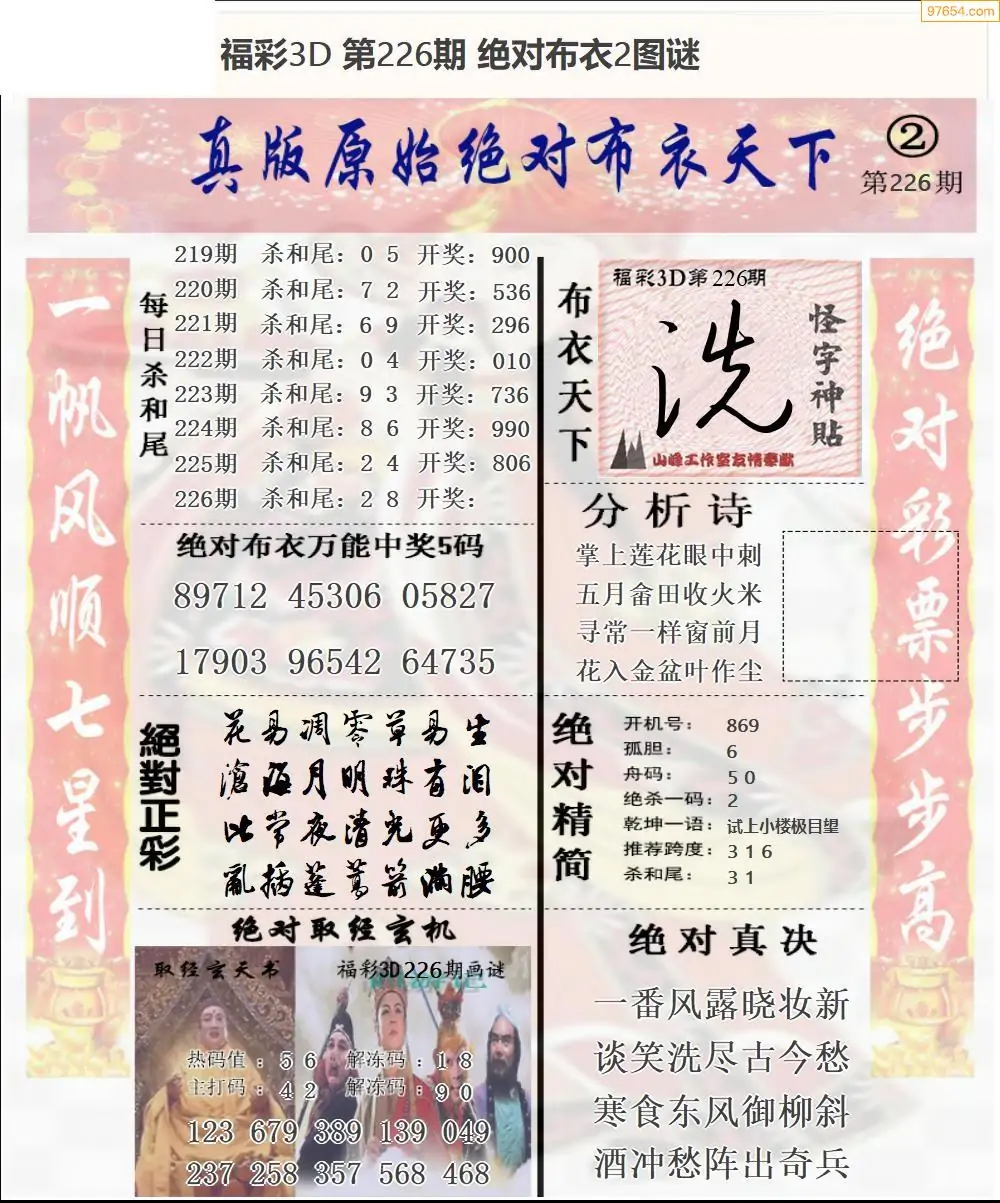 97654.com
福彩3D 第226期 绝对布衣2图谜
真版原始绝对布衣天下
②
第226期
一帆风顺七星到
每日杀和尾
219期 杀和尾：0 5 开奖：900
220期 杀和尾：7 2 开奖：536
221期 杀和尾：6 9 开奖：296
222期 杀和尾：0 4 开奖：010
223期 杀和尾：9 3 开奖：736
224期 杀和尾：8 6 开奖：990
225期 杀和尾：2 4 开奖：806
226期 杀和尾：2 8 开奖：
绝对布衣万能中奖5码
89712 45306 05827
17903 96542 64735
絕對正彩
花易凋零草易生
滄海月明珠有泪
比常夜清光更多
亂插蓬蒿箭满腰
绝对取经玄机
取经玄天书
福彩3D226期画谜
热码值：5 6 解冻码：1 8
主打码：4 2 解冻码：9 0
123 679 389 139 049
237 258 357 568 468
布衣天下
福彩3D第226期
洗
怪字神貼
山峰工作室友情奉献
分析诗
掌上莲花眼中刺
五月畲田收火米
寻常一样窗前月
花入金盆叶作尘
绝对精简
开机号： 869
孤胆： 6
舟码： 5 0
绝杀一码：2
乾坤一语：试上小楼极目望
推荐跨度：3 1 6
杀和尾： 3 1
绝对真决
一番风露晓妆新
谈笑洗尽古今愁
寒食东风御柳斜
酒冲愁阵出奇兵
绝对彩票步步高